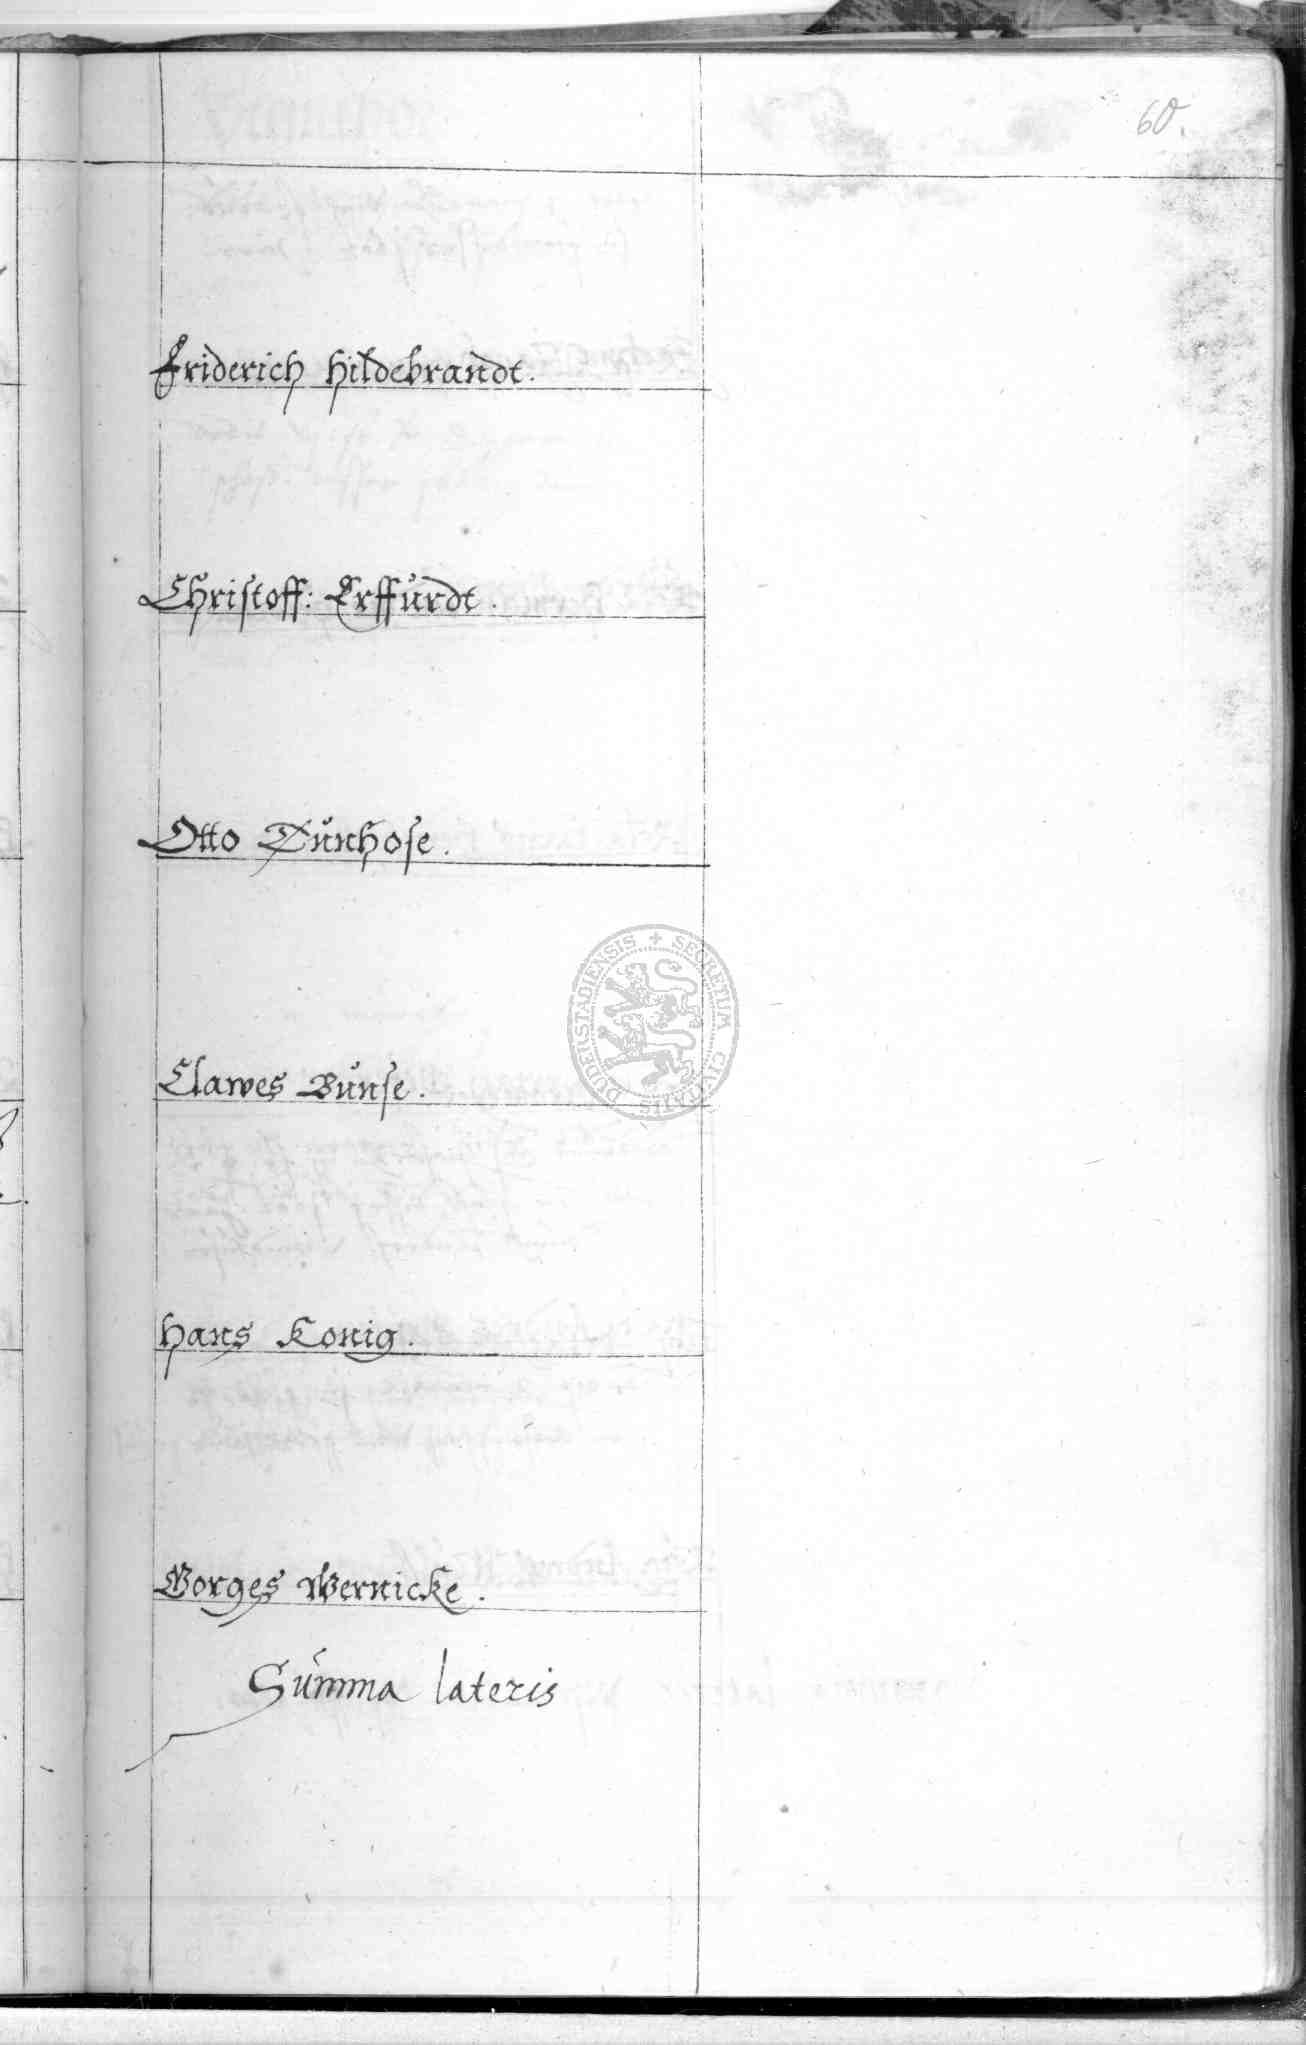 60.
Friderich Hildebrandt.
Christoff: Erffurdt.
Otto Dunhose.
Clawes Bunse.
Hans Konig.
Borges Wernicke.
Summa lateris
SECRETUM CIVITATIS DUDERSTADIENSIS